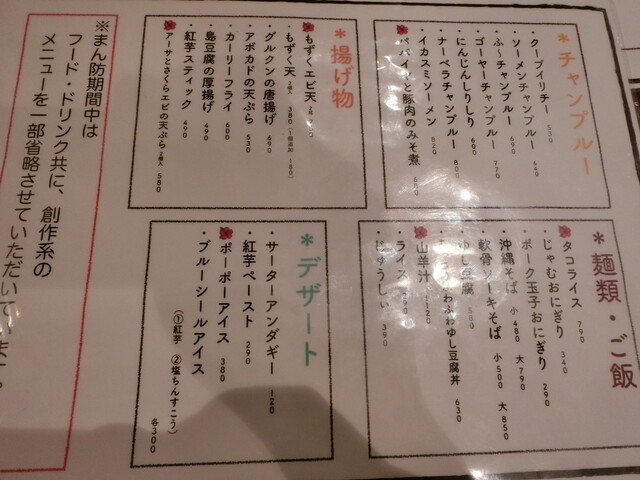 *チャンプルー
・クーブイリチー 530
・ソーメンチャンプルー 640
・ふ〜チャンプルー 690
・ゴーヤーチャンプルー 770
・にんじんしりしり 600
・ナーベラチャンプルー 800
・イカスミソーメン 820
パパイヤと豚肉のみそ煮
*揚げ物
もずくエビ天
・もずく天 2個入 380 (1個追加 180)
・グルクンの唐揚げ 690
・アボカドの天ぷら 530
・カーリーフライ 600
・島豆腐の厚揚げ 490
・紅芋スティック 490
アーサとさくらエビの天ぷら 2個入 580
*麺類・ご飯
タコライス 790
・じゃむおにぎり 340
・ポーク玉子おにぎり 290
・沖縄そば 小480 大790
軟骨ソーキそば 小500 大850
ゆし豆腐 580
ふわふわゆし豆腐丼 630
山羊汁 1120
・ライス
・じゅうしぃ 390
*デザート
・サーターアンダギー 120
・紅芋ペースト 290
ポーポーアイス 380
・ブルーシールアイス
(①紅芋 ②塩ちんすこう) 各300
※まん防期間中は
フード・ドリンク共に、創作系の
メニューを一部省略させていただいて